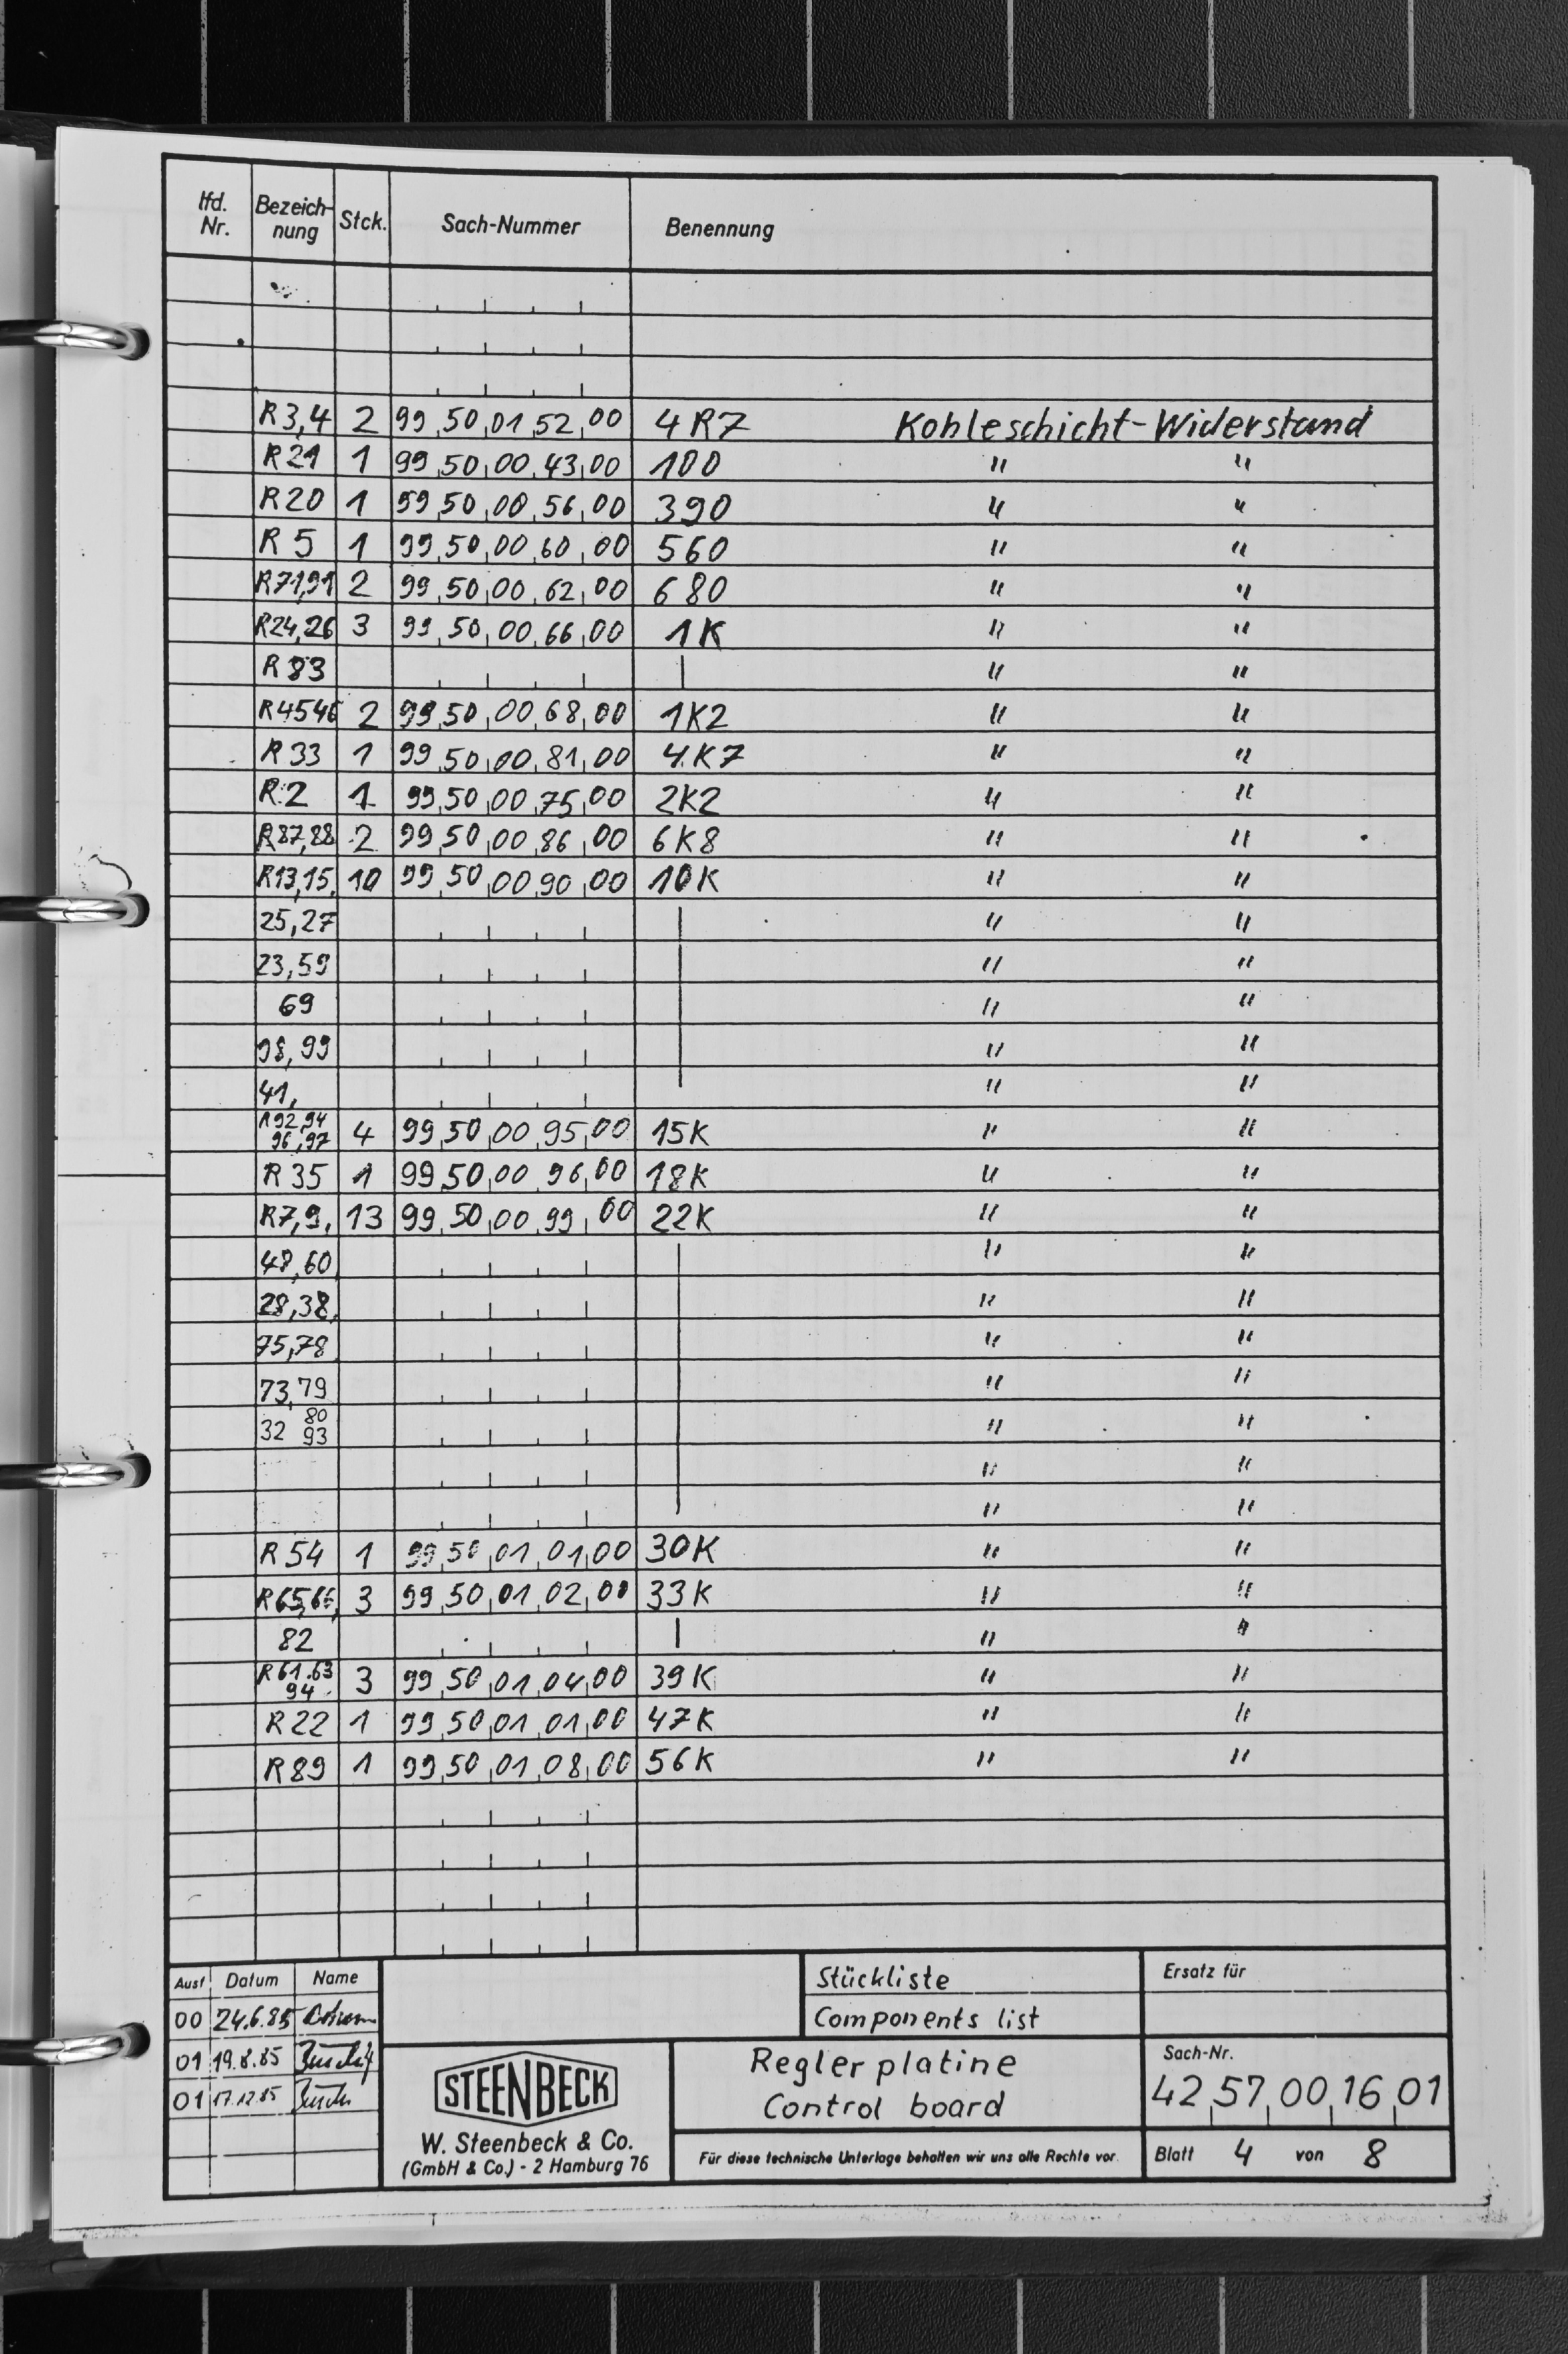 lfd. Nr. Bezeich-nung Stck. Sach-Nummer Benennung
R3,4 2 99,50,01,52,00 4R7 Kohleschicht-Widerstand
R21 1 99,50,00,43,00 100 " "
R20 1 99,50,00,56,00 390 " "
R5 1 99,50,00,60,00 560 " "
R71,91 2 99,50,00,62,00 680 " "
R24,26 3 99,50,00,66,00 1K " "
R83 | " "
R45 46 2 99,50,00,68,00 1K2 " "
R33 1 99,50,00,81,00 4K7 " "
R2 1 99,50,00,75,00 2K2 " "
R87,88 2 99,50,00,86,00 6K8 " "
R13,15, 10 99,50,00,90,00 10K " "
25,27 " "
23,59 " "
69 " "
98,99 " "
41, " "
R92,94 96,97 4 99,50,00,95,00 15K " "
R35 1 99,50,00,96,00 18K " "
R7,9, 13 99,50,00,99,00 22K " "
48,60, " "
28,38, " "
75,78 " "
73,79 " "
32 80 93 " "
" "
" "
R54 1 99,50,01,01,00 30K " "
R65,66, 3 99,50,01,02,00 33K " "
82 | " "
R61.63 94 3 99,50,01,04,00 39K " "
R22 1 99,50,01,01,00 47K " "
R89 1 99,50,01,08,00 56K " "
Ausf Datum Name
00 24.6.85
01 19.8.85
01 17.12.85
Stückliste
Components list
Ersatz für
STEENBECK
W. Steenbeck & Co.
(GmbH & Co.) - 2 Hamburg 76
Reglerplatine
Control board
Für diese technische Unterlage behalten wir uns alle Rechte vor.
Sach-Nr.
42,57,00,16,01
Blatt 4 von 8